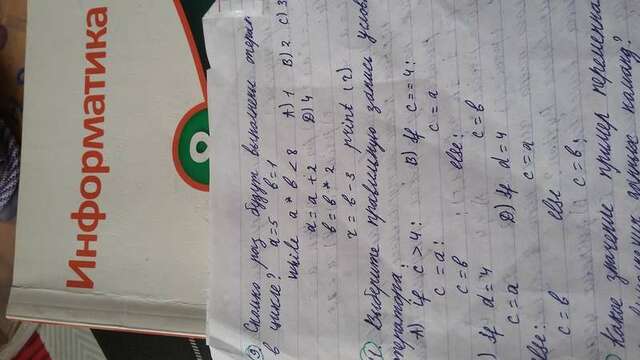 Информатика
8
9) Сколько раз будут выполнены операт
в цикле? a=5 b=1
while a * b < 8 A) 1 B) 2 C) 3
a = a + 2 D) 4
b = b * 2
r = b - 3 print (r)
Выберите правильную запись услов
оператора:
A) if c > 4: B) If c == 4:
c = a: c = a
c = b else:
) If d = 4 c = b
c = a D) If d = 4
else: c = a
c = b else
c = b;
Какое значение пример переменна
выполнения данных команд?